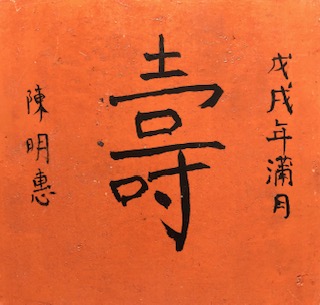 戊戌年滿月
壽
陳明惠